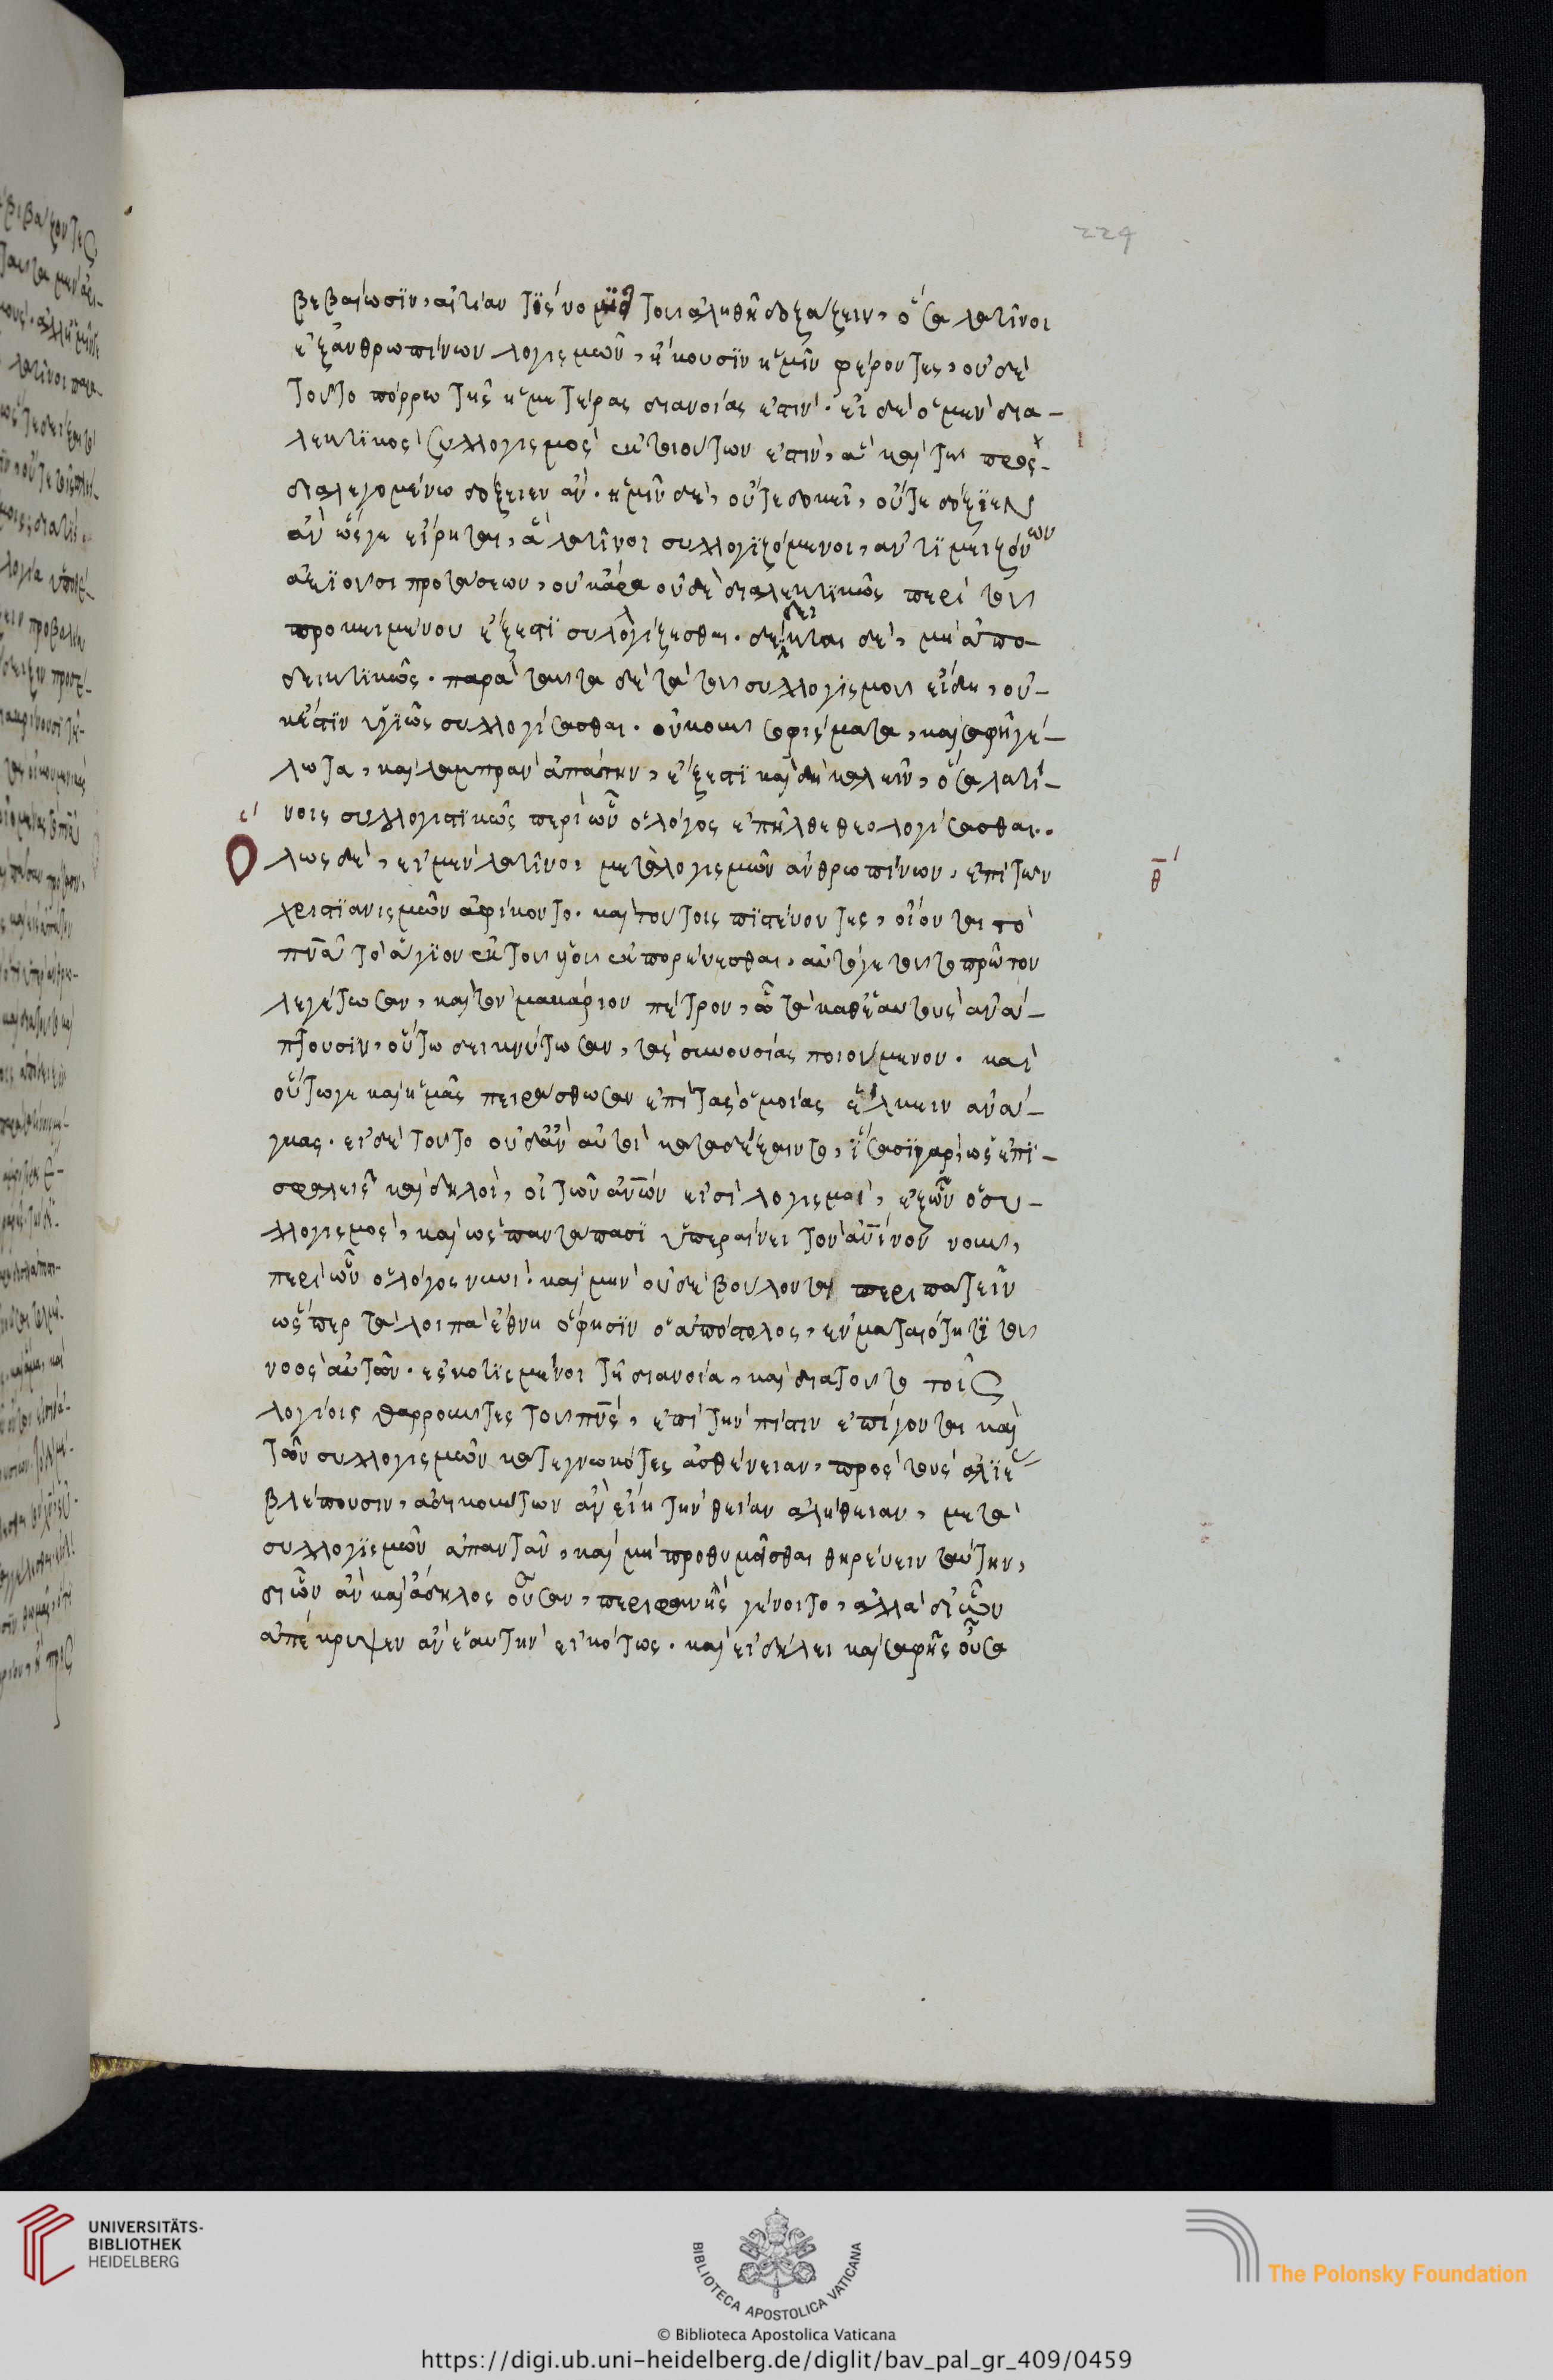 229
βεβαίωσϊν, αἰτίαν τῆς νο τοῦ ἀληθῆ δοξάζειν, ὅσα λατῖνοι
ἐξ ἀνθρωπίνων λογισμῶν, ἥκουσϊν ἡμῖν φέροντες, οὐδὲ
τοῦτο πόρρω τῆς ἡμετέρας διανοίας ἐστιν. εἰ δὲ ὁ μὲν δια-
λεκτϊκὸς συλλογισμὸς ἐκ τοιούτων ἐστιν, ἃ καὶ τῶ προσ-
διαλεγομένω δόξειεν ἄν. ἡμῖν δὲ, οὔτε δοκεῖ, οὔτε δόξϊεν
ἂν ὥς γε εἴρηται, ἃ λατῖνοι συλλογϊζόμενοι, ἀντὶ μειζόνων
ἀξϊοῦσι προτάσεων, οὐκ ἄρα οὐδὲ διαλεκτϊκῶς περὶ τοῦ
προκειμένου ἔξεστϊ συλλογίζεσθαι. δέδεικται δὲ, μὴ ἀπο
δεικτϊκῶς. παρὰ ταῦτα δὲ τὰ τοῦ συλλογισμοῦ εἴδη, οὐ-
κ ἔστϊν ὑγϊῶς συλλογίσασθαι. οὐκοῦν σοφίσματα, καὶ σαφῆ γέ-
λωτα, καὶ λαμπρὰν ἀπάτην, ἔξεστϊ καὶ δὴ καλεῖν, ὅσα λατί-
νοις συλλογιστϊκῶς περὶ ὧν ὁ λόγος ἐπῆλθε θεολογίσασθαι.
Ὅλως δὲ, εἰ μὲν λατῖνοι μετὰ λογισμῶν ἀνθρωπίνων, ἐπὶ τὸν
θ
χριστϊανισμὸν ἀφίκοντο. καὶ τούτοις πϊστεύοντες, οἴονται τὸ
πνᾶ τὸ ἅγϊον ἐκ τοῦ υἱοῦ ἐκπορεύεσθαι, αὐτό γε τοῦτο πρῶτον
λεγέτωσαν, καὶ τὸν μακάριον πέτρον, ὧ τὰ καθ' ἑαυτοὺς ἀνά-
πτουσϊν, οὕτω δεικνύτωσαν, τὰς συνουσίας ποιούμενον. καὶ
οὕτω γε καὶ ἡμᾶς πειράσθωσαν ἐπὶ τὰς ὁμοίας ἕλκειν ἀνά-
γκας. εἰ δὲ τοῦτο οὐδ' ἂν αὐτοὶ καταδέξαιντο, ἴσασϊ γὰρ, ὡς ἐπϊ-
σφαλεῖς καὶ δηλοὶ, οἱ τῶν ἀνων εἰσὶ λογισμοὶ, ἐξ ὧν ὁ συ-
λλογισμὸς, καὶ ὡς παντάπασϊ ὑπεραίνει τὸν ἀνινον νοῦν,
περὶ ὧν ὁ λόγος νυνί. καὶ μὴν οὐδὲ βούλονται περιπατεῖν
ὥσπερ τὰ λοιπὰ ἔθνη ὅ φησϊν ὁ ἀπόστολος, ἐν ματαιότητϊ τοῦ
νοὸς αὐτῶν. ἐσκοτϊσμένοι τῆ διανοία, καὶ διὰ τοῦτο τοῖς
λογίοις θαρροῦντες τοῦ πνς, ἐπὶ τὴν πίστιν ἐπείγονται καὶ
τῶν συλλογισμῶν κατεγνωκότες ἀσθένειαν, πρὸς τοὺς ἁλϊεῖς
βλέπουσιν, ἀδικούντων ἂν εἴη τὴν θείαν ἀλήθειαν, μετὰ
συλλογϊσμῶν ἀπαντᾶν, καὶ μὴ προθυμεῖσθαι θηρεύειν ταύτην,
δι' ὧν ἂν καὶ ἄδηλος οὖσαν, περιφανὴς γένοιτο, ἀλλὰ δι' ὧν
ἀπέκρυψεν ἂν ἑαυτὴν εἰκότως. καὶ εἰ δήλη καὶ σαφὴς οὖσα
UNIVERSITÄTS-
BIBLIOTHEK
HEIDELBERG
BIBLIOTECA APOSTOLICA VATICANA
The Polonsky Foundation
© Biblioteca Apostolica Vaticana
https://digi.ub.uni-heidelberg.de/diglit/bav_pal_gr_409/0459